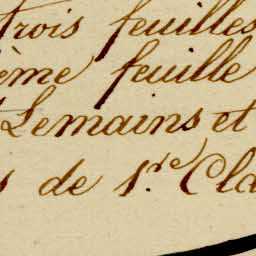 trois feuilles
ème feuille
Lemains et
s de 1.re Cla